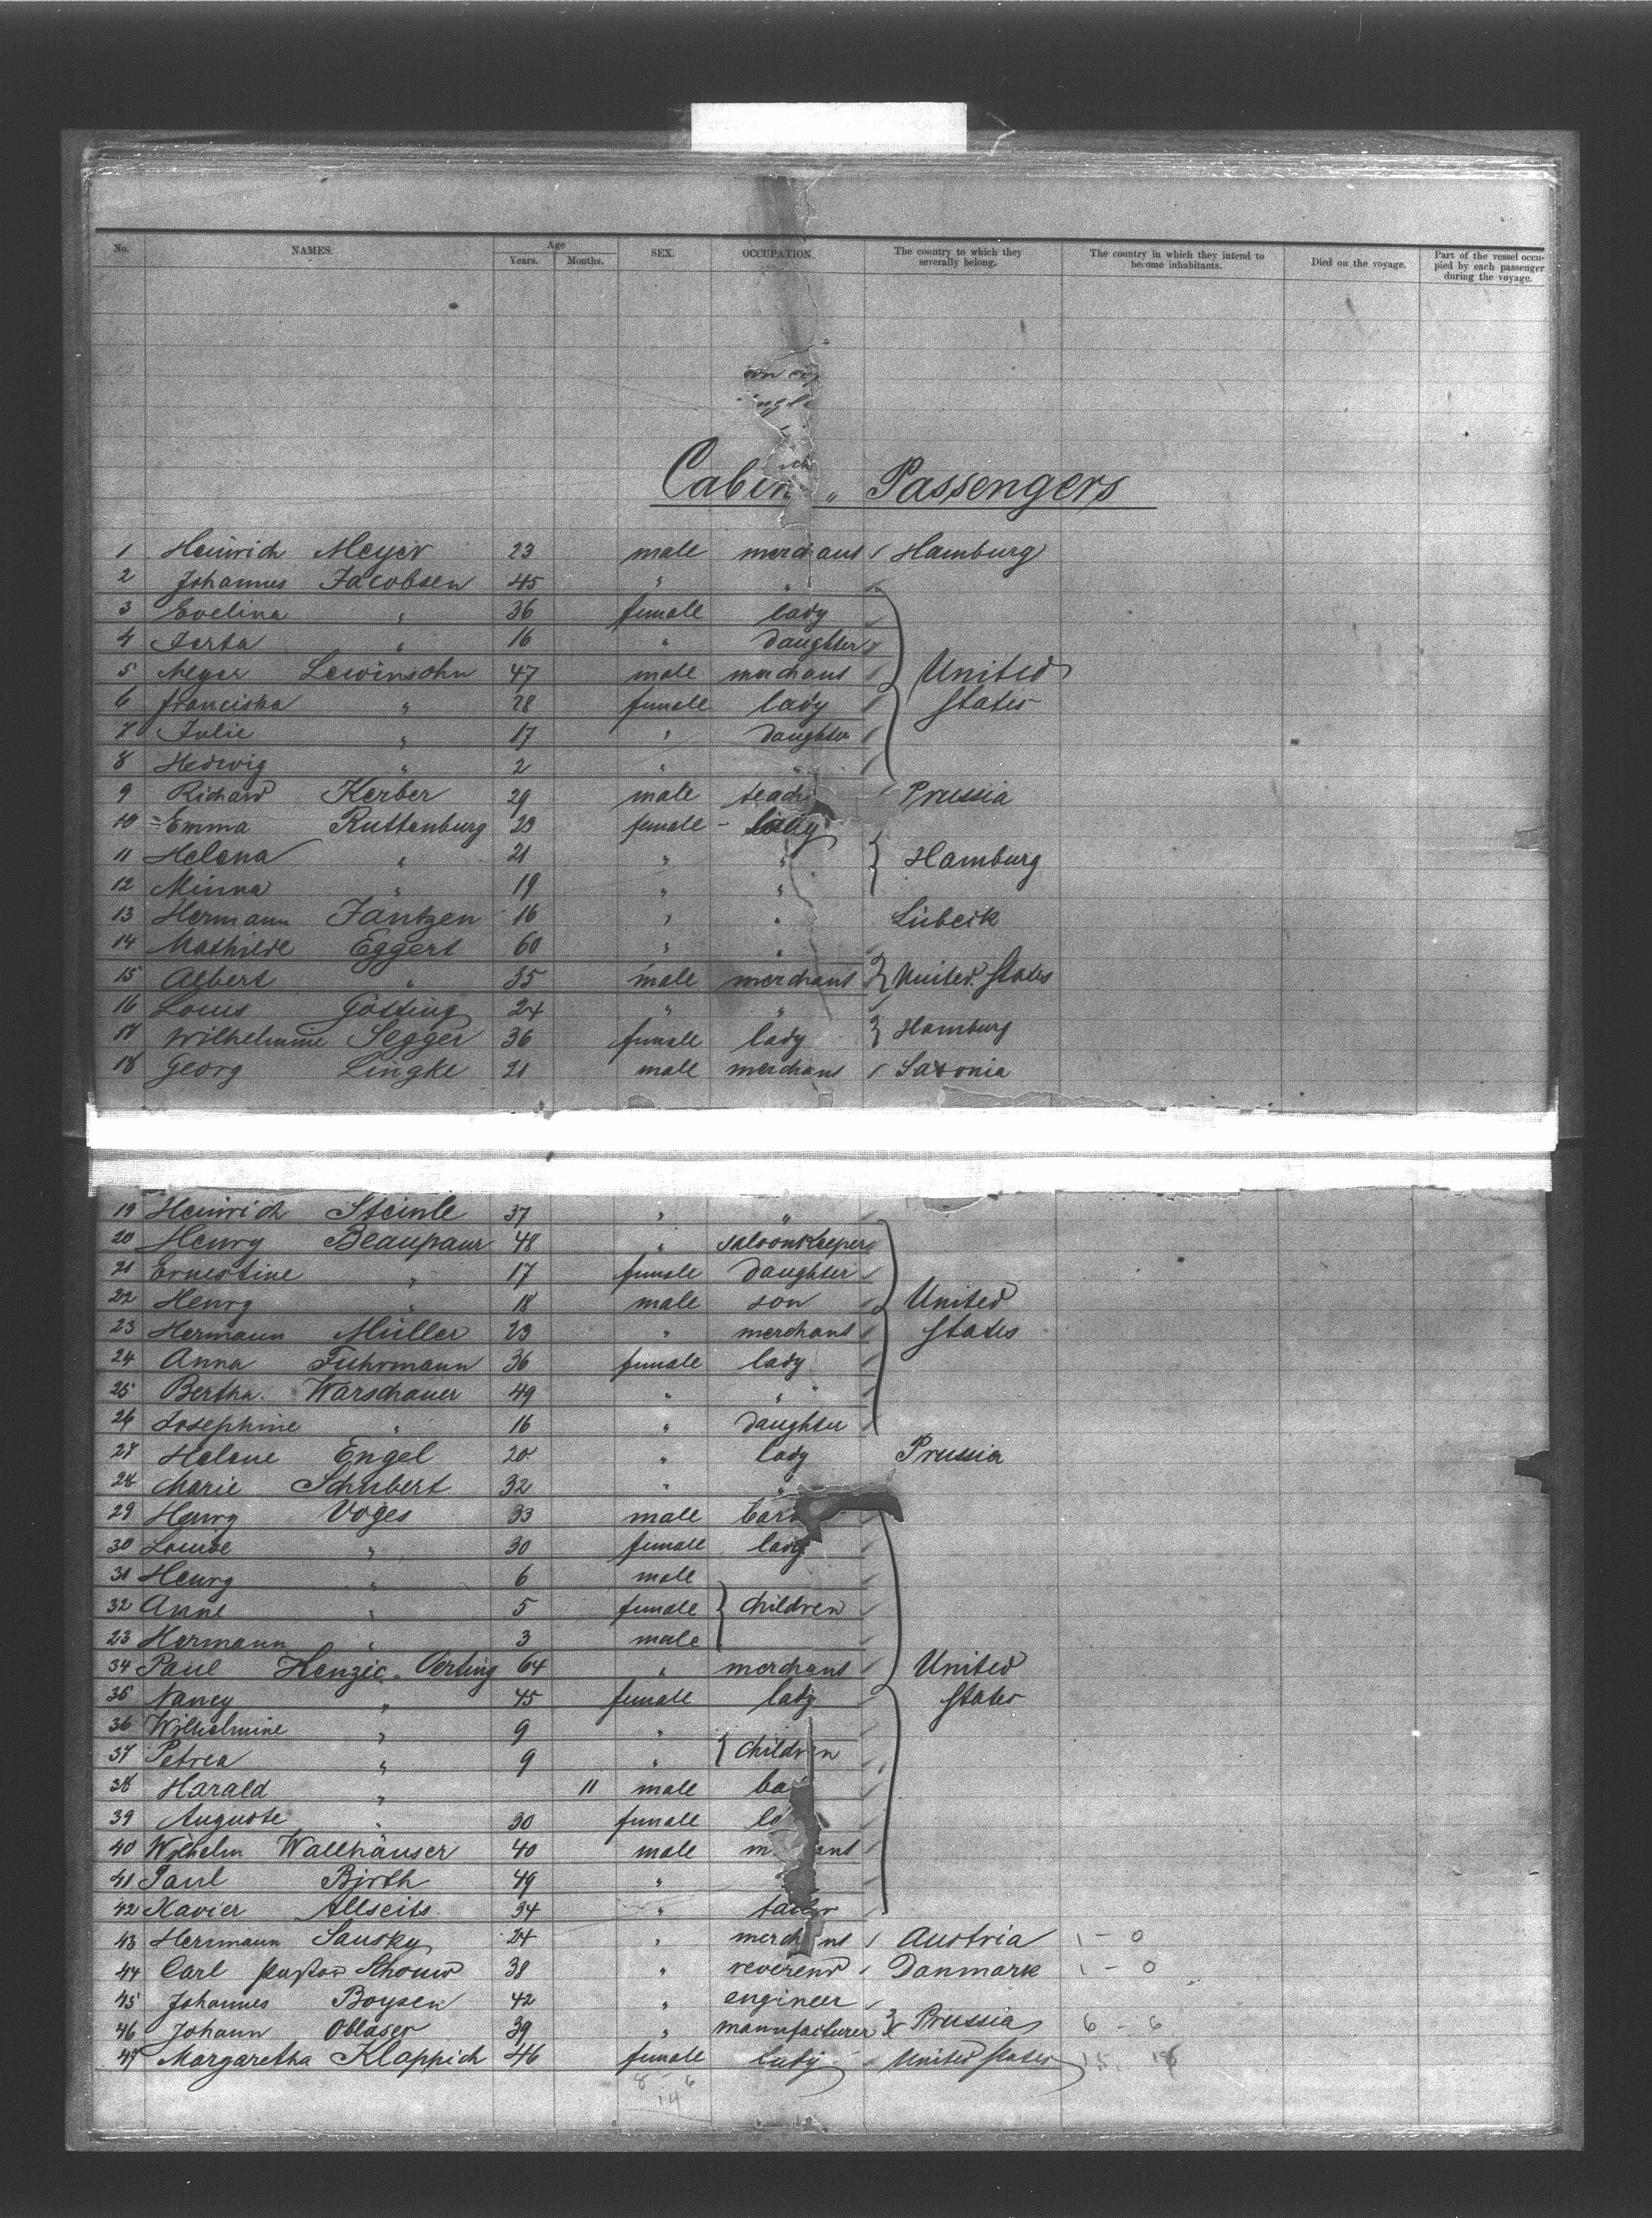 No. NAMES. Age Years. Months. SEX. OCCUPATION. The country to which they severally belong. The country in which they intend to become inhabitants. Died on the voyage. Part of the vessel occupied by each passenger during the voyage.
Cabin " Passengers
1 Heinrich Meyer 23 male merchant Hamburg
2 Johannes Jacobsen 45 " "
3 Evelina " 36 female lady
4 " 16 " daughter
5 Meyer Lewinsohn 47 male merchant United
6 Franciska " 28 female lady States
7 Julie " 17 " daughter
8 Hedwig " 2 " "
9 Richard Kerber 29 male teach Prussia
10 Emma Ruttenburg 23 female - lady
11 Helena " 21 " " Hamburg
12 Minna " 19 " "
13 Hermann Jantzen 16 " " Lübeck
14 Mathilde Eggert 60 " "
15 Albert " 35 male merchant United States
16 Louis Götting 24 " "
17 Wilhelmine Segger 36 female lady Hamburg
18 Georg Lingke 21 male merchant Saxonia
19 Heinrich Steinle 37 " "
20 Henry Beaupaur 48 " saloonkeeper
21 Ernestine " 17 female daughter
22 Henry " 18 male son United
23 Hermann Müller 23 " merchant States
24 Anna Fuhrmann 36 female lady
25 Bertha Warschauer 49 " "
26 Josephine " 16 " daughter
27 Helene Engel 20 " lady Prussia
28 Marie Schubert 32 " "
29 Henry Voges 33 male
30 Louise " 30 female lady
31 Henry " 6 male
32 Anne " 5 female children
23 Hermann " 3 male
34 Paul Henzic Oerting 64 " merchant United
35 Nancy " 45 female lady States
36 Wilhelmine " 9 "
37 Petrea " 9 " children
38 Harald " 11 male ba
39 Auguste " 30 female la
40 Wilhelm Wallhäuser 40 male m ant
41 Paul Bjrth 49 "
42 Xavier Allseits 34 " tailor
43 Herrmann Sausky 24 " merchant Austria 1 - 0
44 Carl Gustav Schouw 38 " reverend Danmark 1 - 0
45 Johannes Boysen 42 " engineer
46 Johann Oblaser 39 " manufacturer Prussia 6 - 6
47 Margaretha Klappich 46 female lady United States 15
8 - 6
14